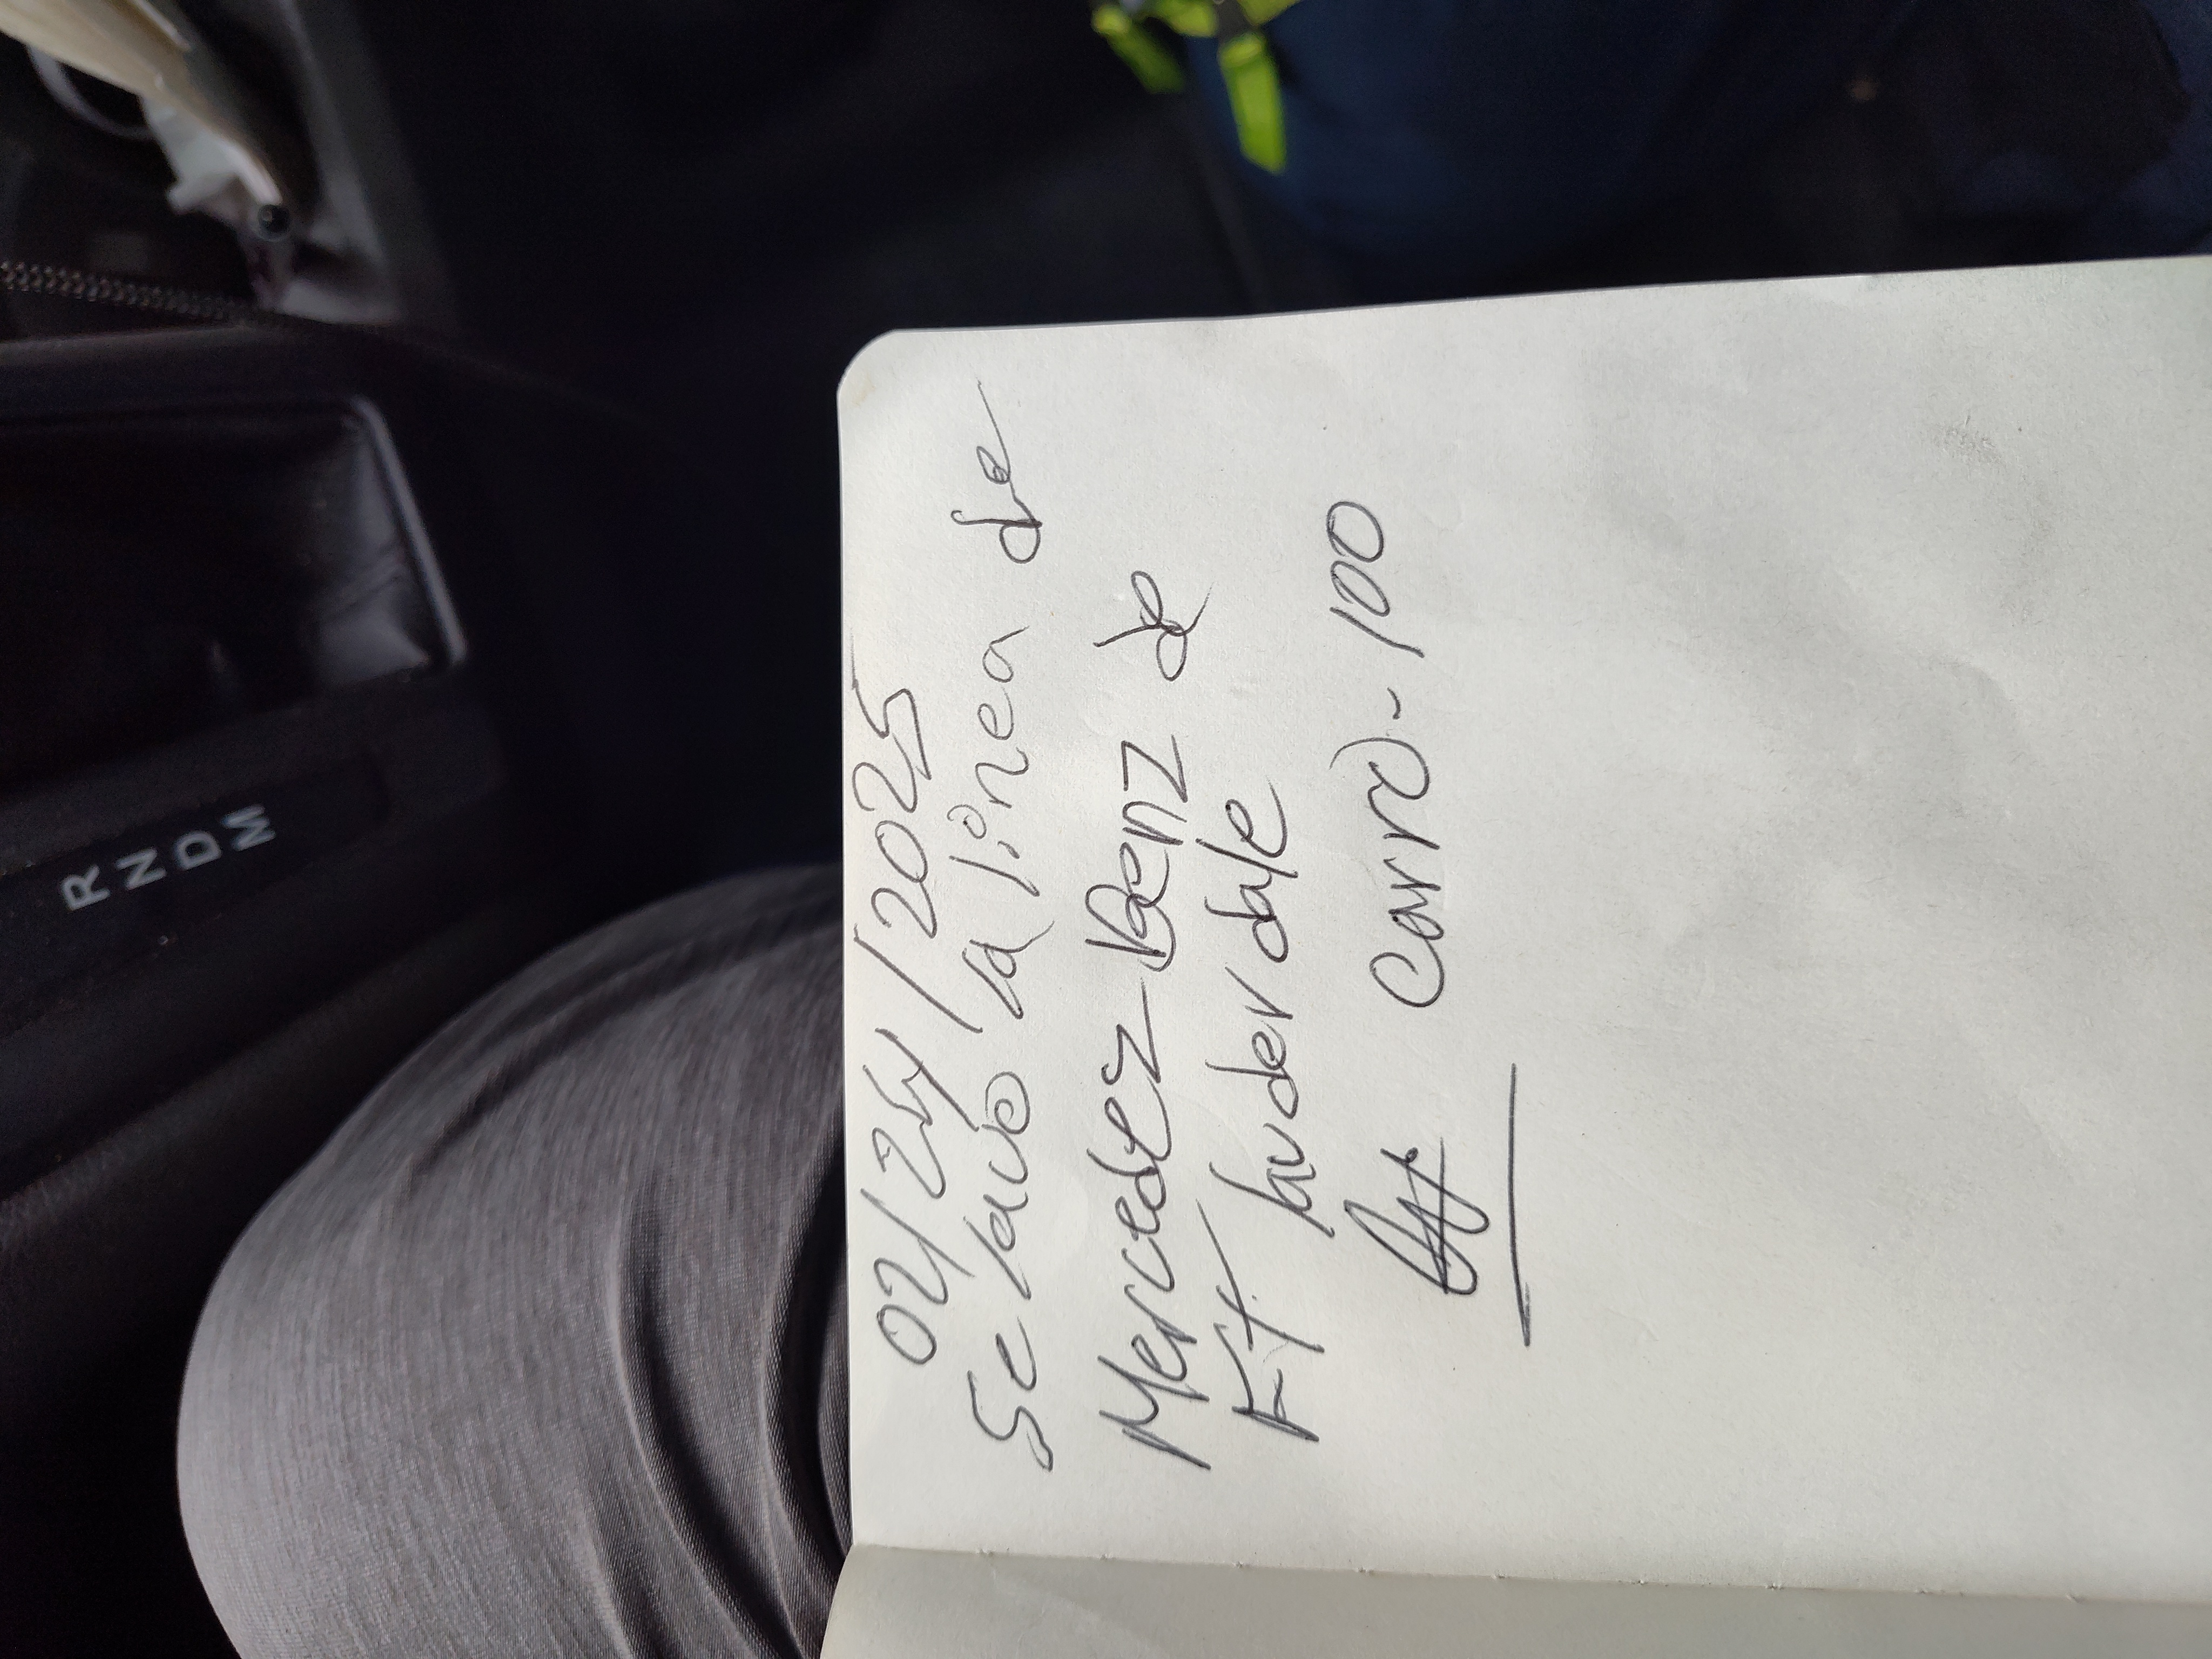 02/24/2025
Se lavó la línea de
Mercedez-Benz de
Ft lauderdale
Carro-100
R
N
D
M